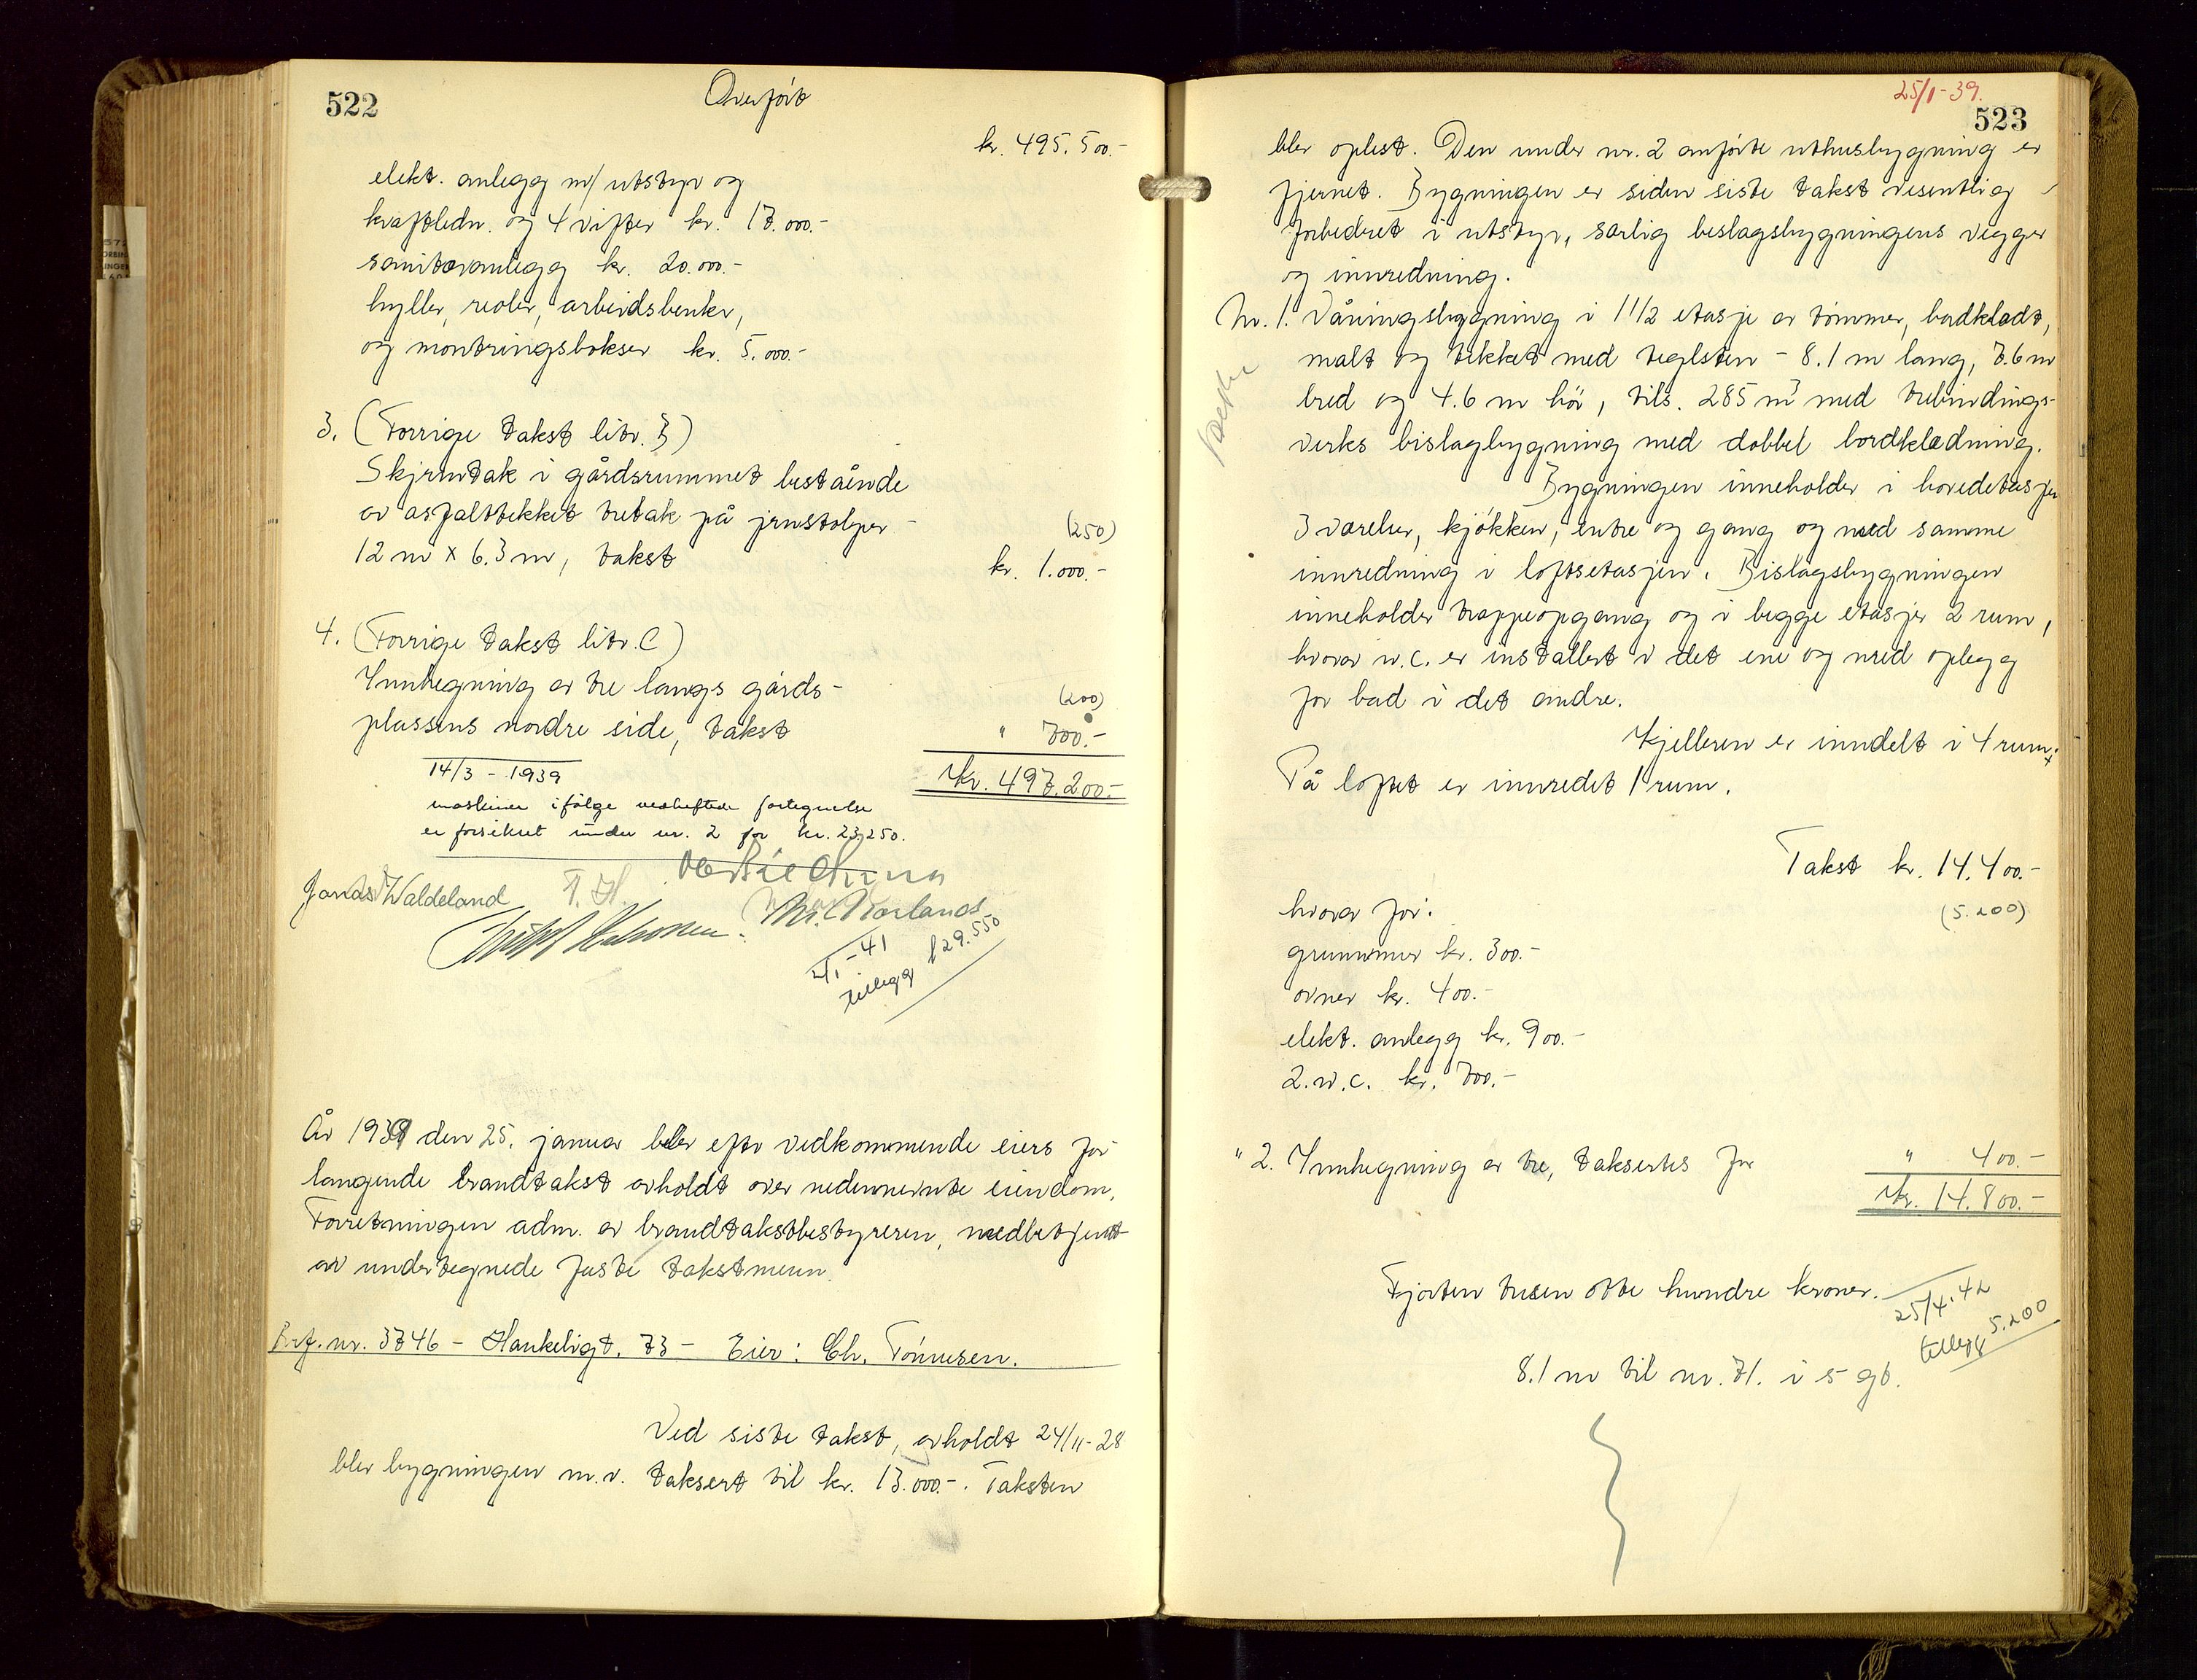 522
Overført
kr. 495.500.-
elekt. anlegg m/ utstyr og
kraftledn. og 4 vifter kr. 17.000.-
sanitæranlegg kr. 20.000.-
hyller, reoler, arbeidsbenker,
og montringsbokser kr. 5.000.-
3. (Forrige takst litr. B)
Skjermtak i gårdsrummet bestående
av asfalttekket tretak på jernstolper
(250)
12 m x 6.3 m, takst kr. 1.000.-
4. (Forrige takst litr. C)
Innhegning av tre langs gårds-
(200)
plassens nordre side, takst " 700.-
Kr. 497.200.-
14/3 - 1939
maskiner ifølge vedheftede fortegnelse
er forsikret under nr. 2 for kr. 23,250.
Jonas Waldeland T. H.
2/1 - 41
tillegg 129.550
År 1939 den 25. januar blev efter vedkommende eiers for
langende brandtakst avholdt over nedennevnte eiendom.
Forretningen adm. av brandtakstbestyreren, medbetjent
av undertegnede faste takstmenn.
Brf. nr. 3746 - Haukeligt. 73 - Eier: Chr. Tönnesen.
Ved siste takst, avholdt 24/11-28
blev bygningen m.v. taksert til kr. 13.000.-. Taksten
25/1-39.
523
blev oplest. Den under nr. 2 anførte uthusbygning er
fjernet. Bygningen er siden siste takst vesentlig
forbedret i utstyr, særlig beslagsbygningens vegger
og innredning.
Nr. 1. Våningsbygning i 1 1/2 etasje av tømmer, bordkledt,
malt og tekket med teglsten - 8.1 m lang, 7.6 m
bred og 4.6 m høi, tils. 285 m³ med trebindings-
verks bislagbygning med dobbel bordkledning.
Bygningen inneholder i hovedetasjen
3 værelser, kjøkken, entre og gang og med samme
innredning i loftsetasjen. Bislagsbygningen
inneholder trappeopgang og i begge etasjer 2 rum,
hvorav w.c. er installert i det ene og med oplegg
for bad i det andre.
Kjelleren er inndelt i 4 rum.
På loftet er innredet 1 rum.
Takst kr. 14.400.-
(5.200)
hvorav for:
grunnmur kr. 300.-
ovner kr. 400.-
elekt. anlegg kr. 900.-
2 w.c. kr. 700.-
" 2. Innhegning av tre, taksertes for " 400.-
Kr. 14.800.-
Fjorten tusen otte hundre kroner.
25/4-42
tillegg 5.200
8.1 m til nr. 71. i 5 gt.